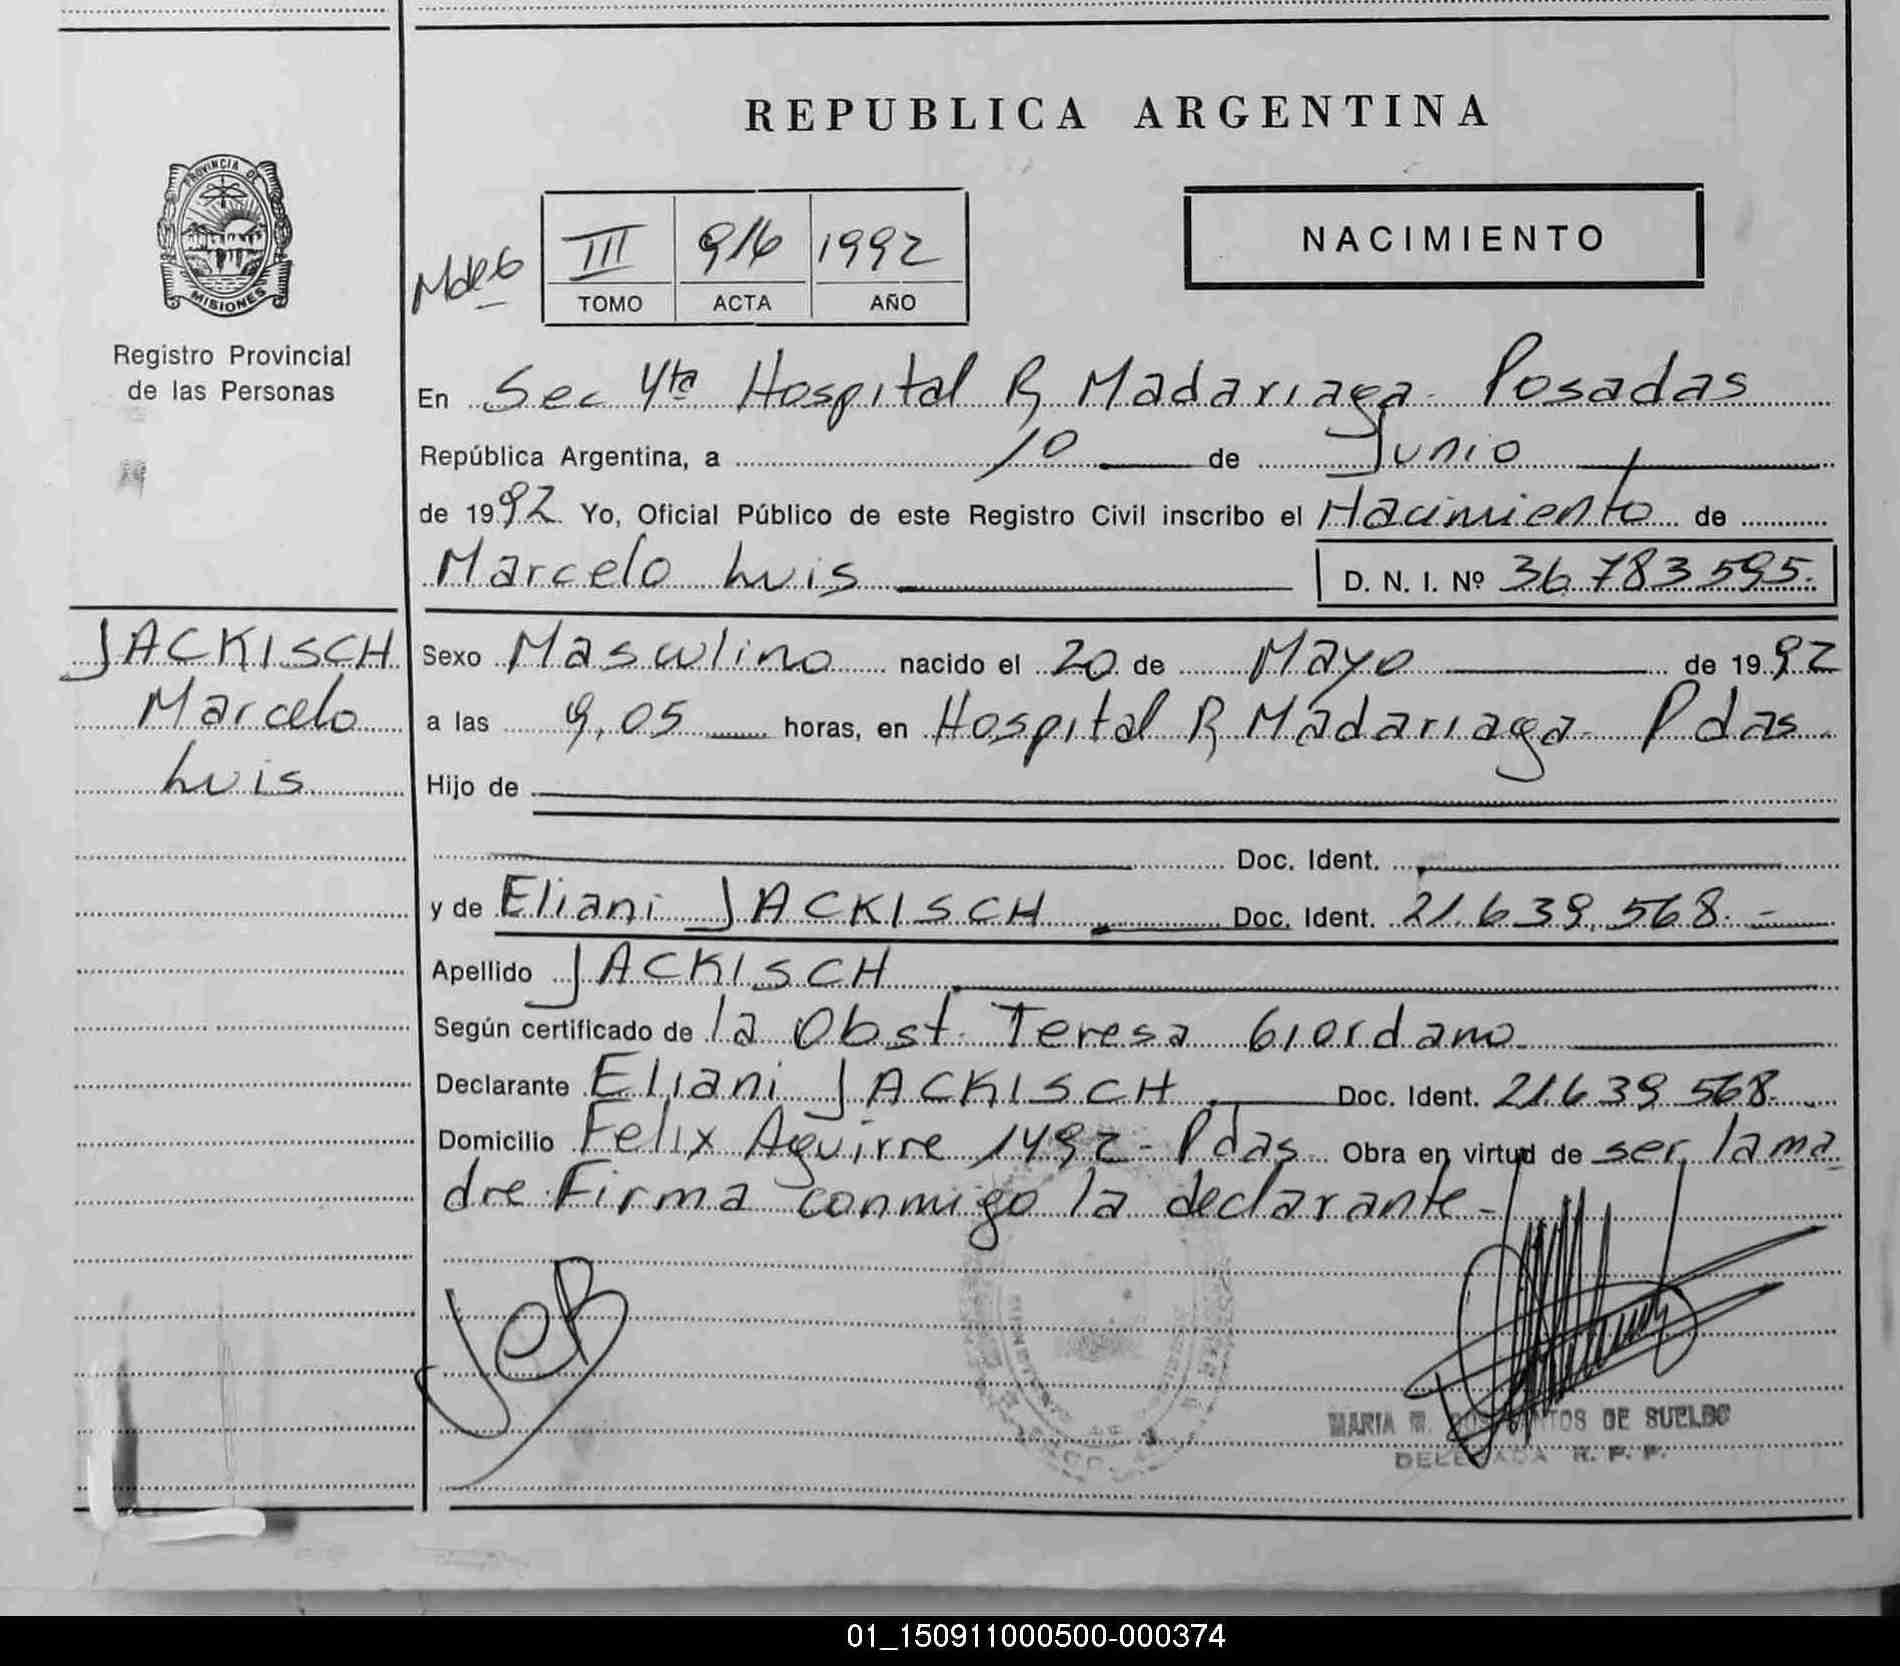 REPUBLICA ARGENTINA
PROVINCIA DE
MISIONES
Registro Provincial
de las Personas
III 916 1992
TOMO ACTA AÑO
NACIMIENTO
En Sec 4ta Hospital R Madariaga - Posadas
República Argentina, a 10 de Junio
de 1992 Yo, Oficial Público de este Registro Civil inscribo el Nacimiento de
Marcelo Luis D. N. I. Nº 36.783.595.
JACKISCH
Marcelo
Luis
Sexo Masculino nacido el 20 de Mayo de 1992
a las 9,05 horas, en Hospital R Madariaga - Pdas
Hijo de
Doc. Ident.
y de Eliani JACKISCH Doc. Ident. 21.639.568.-
Apellido JACKISCH
Según certificado de la Obst. Teresa Giordano
Declarante Eliani JACKISCH Doc. Ident. 21.639 568.
Domicilio Felix Aguirre 1492 - Pdas Obra en virtud de ser la ma
dre. Firma conmigo la declarante -
MARIA DE SUELDO
DELEGADA R. P. P.
01_150911000500-000374